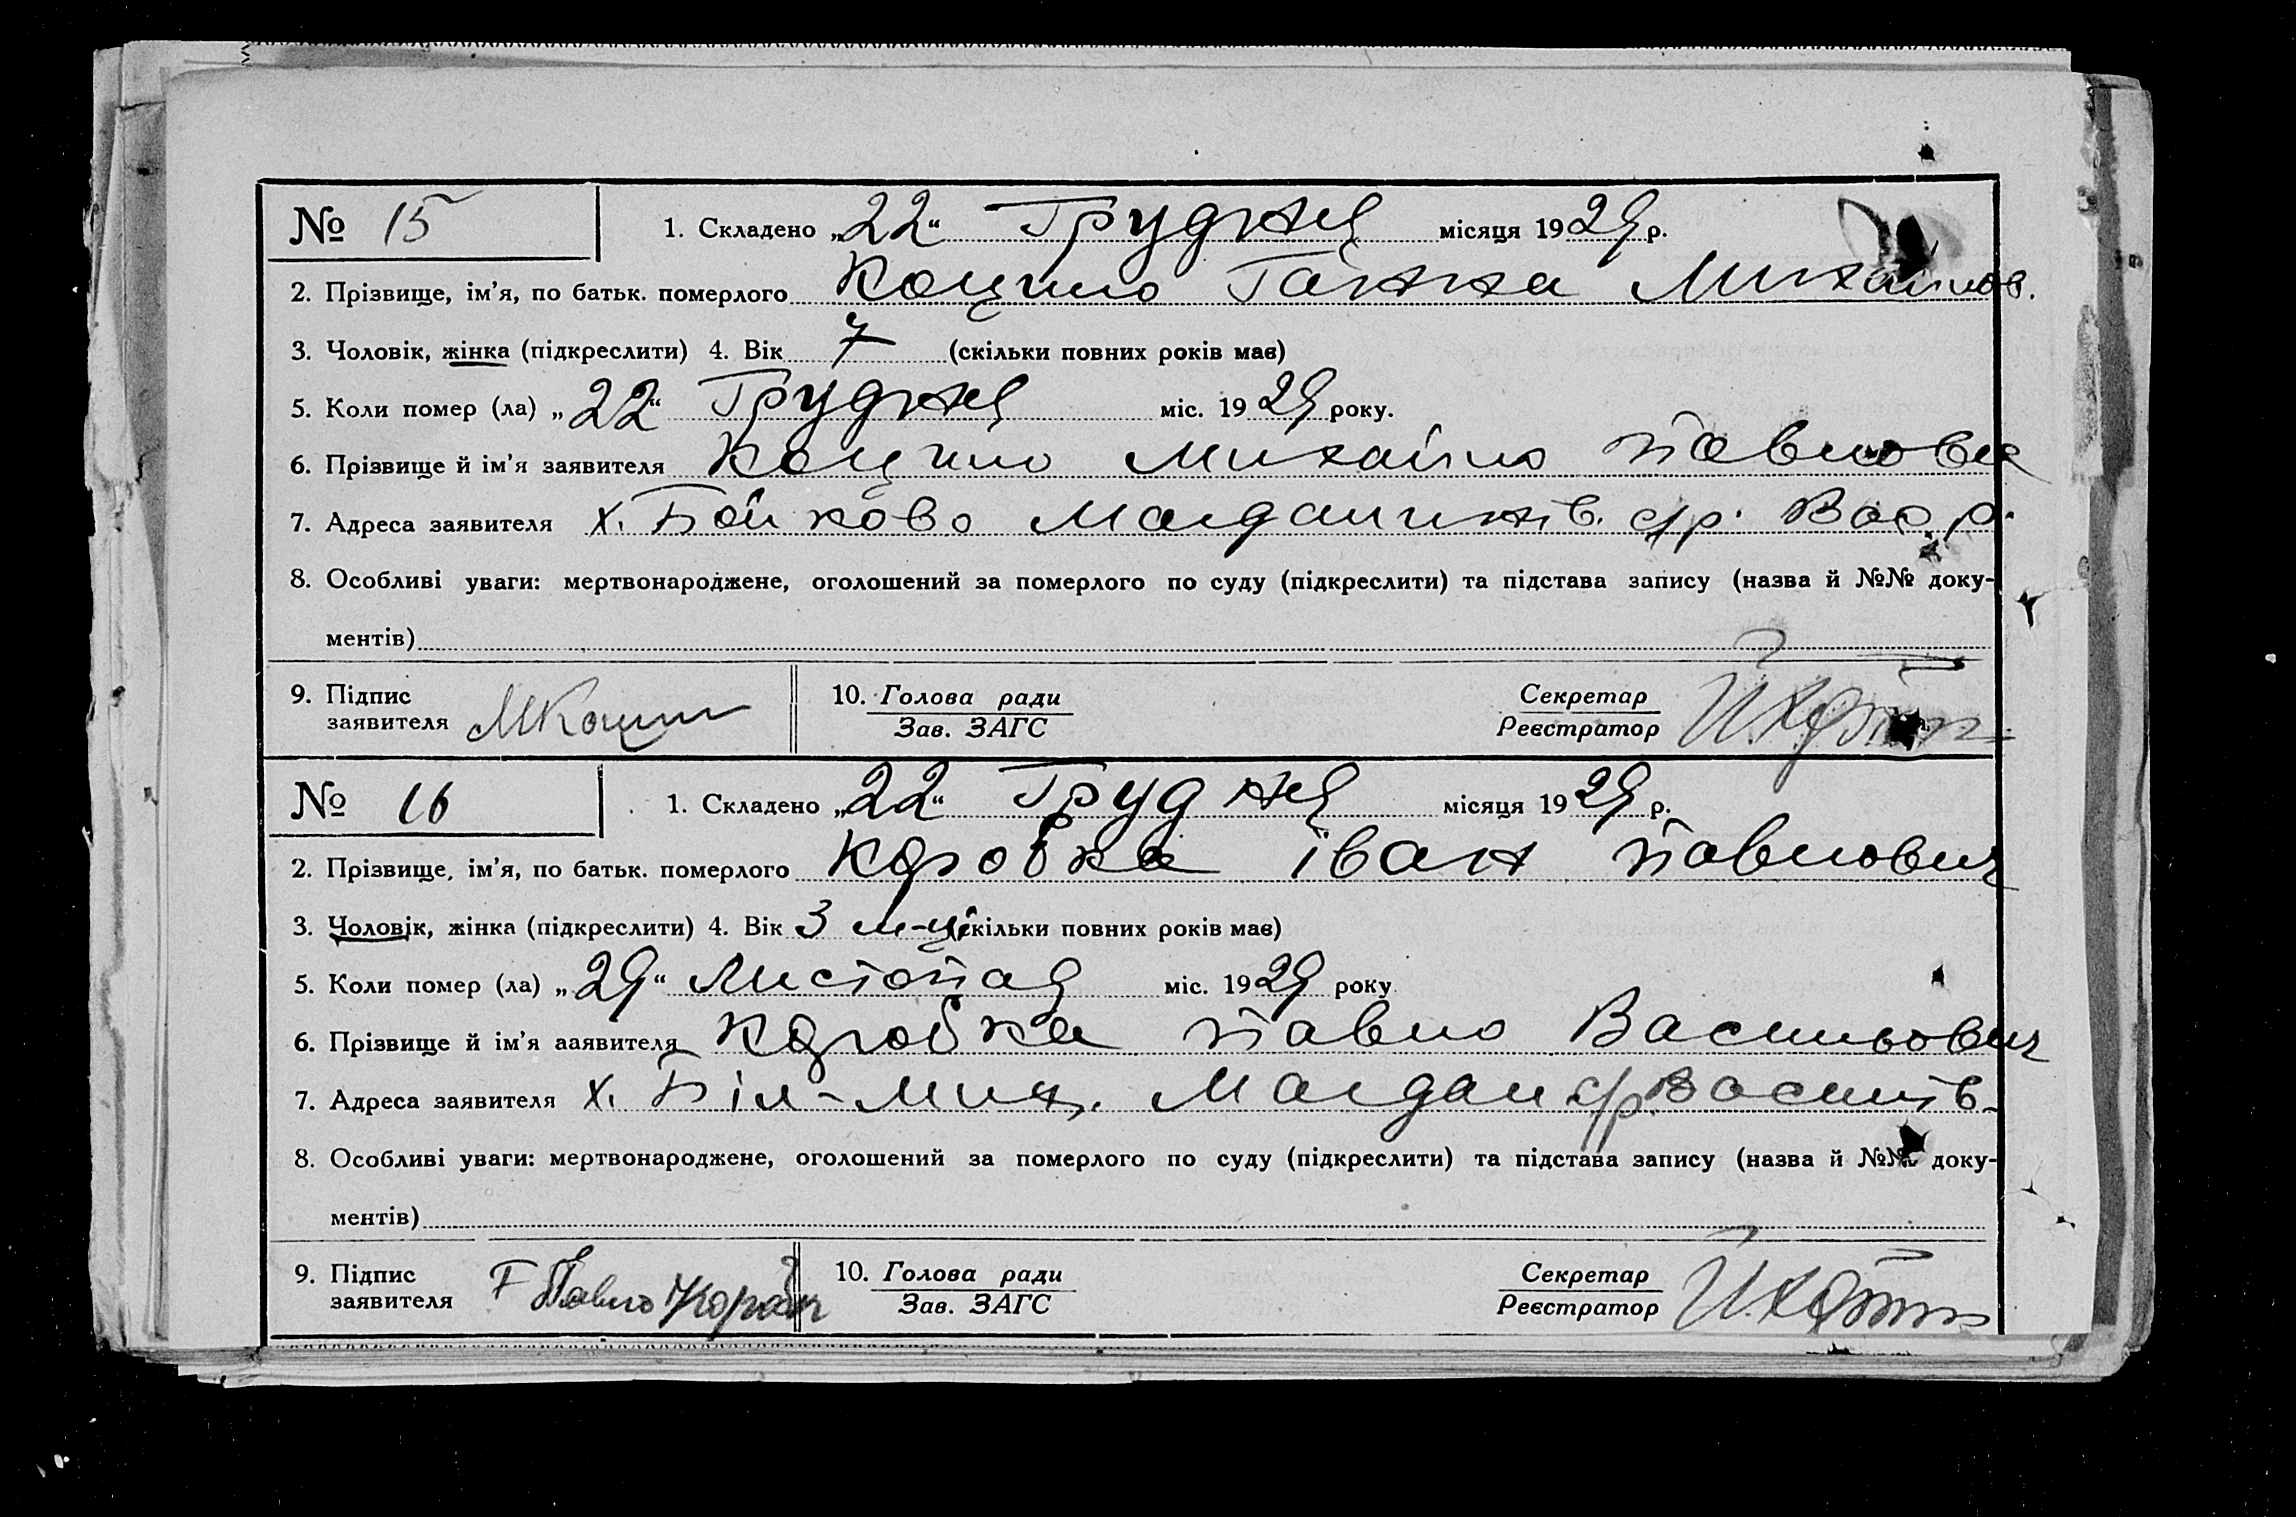 № 15 1. Складено „22“ Грудня місяця 1929 р.
2. Прізвище, ім'я, по батьк. померлого Коцило Ганна Михайлов.
3. Чоловік, жінка (підкреслити) 4. Вік 7 (скільки повних років має)
5. Коли помер (ла) „22“ Грудня міс. 1929 року.
6. Прізвище й ім'я заявителя Коцило Михайло Павлович
7. Адреса заявителя х. Бойково с/р. Вас р.
8. Особливі уваги: мертвонароджене, оголошений за померлого по суду (підкреслити) та підстава запису (назва й №№ доку-
ментів)
9. Підпис 10. Голова ради Секретар
заявителя Зав. ЗАГС Реєстратор
№ 16 1. Складено „22“ Грудня місяця 1929 р.
2. Прізвище, ім'я, по батьк. померлого Коробка Іван Павлович
3. Чоловік, жінка (підкреслити) 4. Вік 3 м-ці (скільки повних років має)
5. Коли помер (ла) „29“ Листопад міс. 1929 року
6. Прізвище й ім'я ааявителя Коробка Павло Васильович
7. Адреса заявителя х. Магдал с/р. Василів-
8. Особливі уваги: мертвонароджене, оголошений за померлого по суду (підкреслити) та підстава запису (назва й №№ доку-
ментів)
9. Підпис Павло 10. Голова ради Секретар
заявителя Зав. ЗАГС Реєстратор